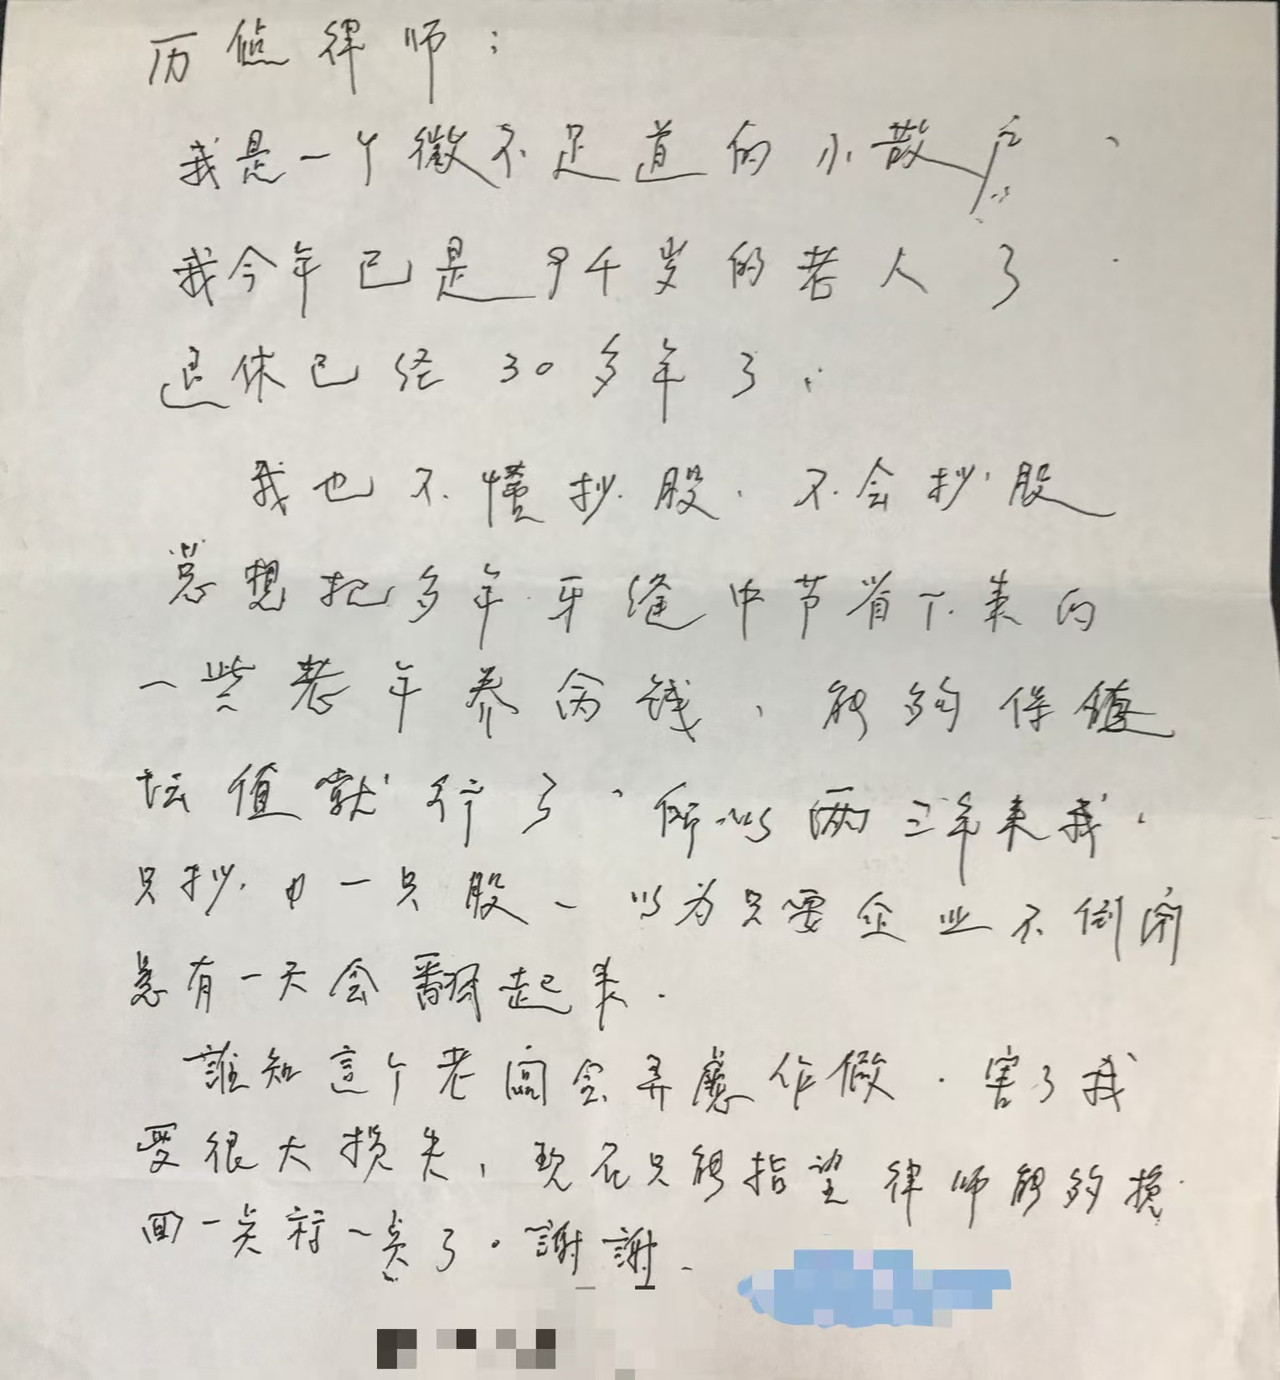 历 律师：
我是一个微不足道的小散户、
我今年已是9千岁的老人了.
退休已经30多年了.
我也不懂抄股.不会抄股
总想把多年牙缝中节省下来的
一些老年养命钱、能够保值
坛值就行了、所以两三年来我、
只抄中一只股、以为只要企业不倒闭
总有一天会翻起来.
誰知這个老闆会弄虚作假.害了我
受很大损失,现在只能指望律师能够挽
回一点祘一点了.謝謝.